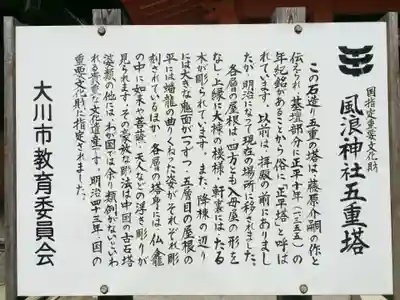 国指定重要文化財
風浪神社五重塔
この石造り五重の塔は、藤原介嗣の作と
伝えられ、基壇部分に正平十年（一三五五）の
年紀銘があることから俗に「正平塔」と呼ば
れています。以前は、拝殿の前にありまし
たが、明治になって現在の場所に移されました。
各層の屋根は、四方とも入母屋の形を
なし、上縁に大棟の模様、軒裏にはたる
木が彫られています。また、降棟の辺り
には大きな鬼面が一つずつ、五層目の屋根の
平には蟠龍の曲りくねった姿がそれぞれ彫
刻されているほか、各層の塔身には、仏龕
の中に如来や菩薩、天人などの浮き彫りが
見られます。その豪放な彫法は中国の古石塔
婆類の他には、わが国では余り類例がないといわ
れる貴重な文化遺産です。明治四十三年、国の
重要文化財に指定されました。
大川市教育委員会